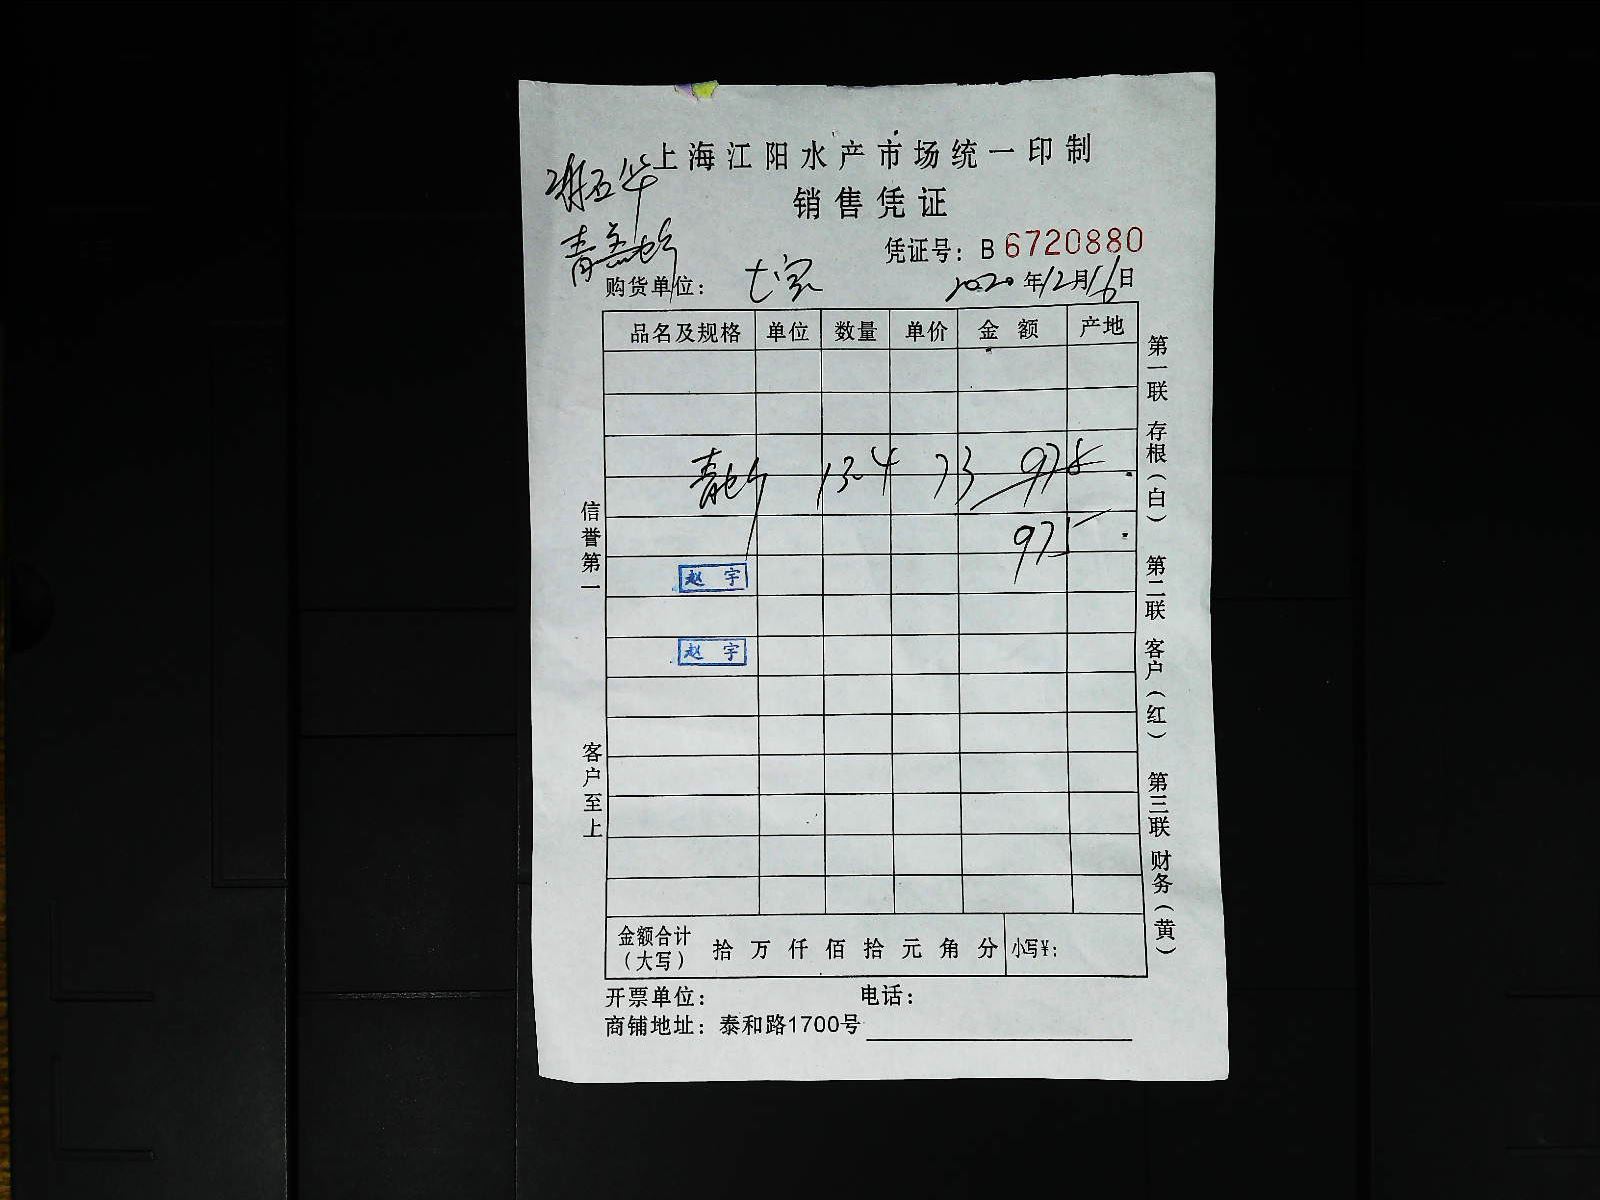 上海江阳水产市场统一印制
销售凭证
凭证号：B 6720880
购货单位： 七宝 2020年12月16日
品名及规格 单位 数量 单价 金额 产地
13.4 73 975
975
赵宇
赵宇
信誉第一
客户至上
第一联 存根（白） 第二联 客户（红） 第三联 财务（黄）
金额合计（大写） 拾 万 仟 佰 拾 元 角 分 小写¥：
开票单位： 电话：
商铺地址：泰和路1700号